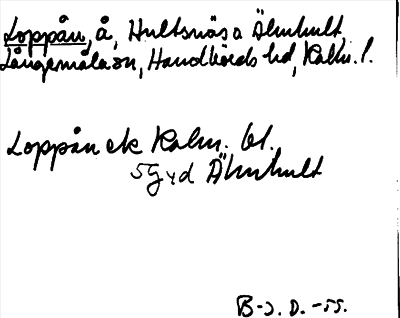 Loppån, å, Hultsnäs a Älmhult,
Långemåla sn, Handbörds hd, Kalm. l.
Loppån ek Kalm. bl.
5G yd Älmhult
B-J. D. -55.